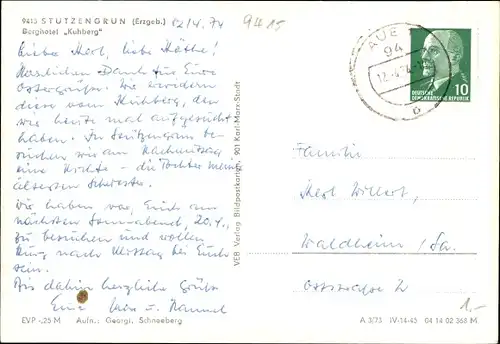 9413 STÜTZENGRÜN (Erzgeb.)
Berghotel „Kuhberg"
12/4. 74
9415
Liebe Käthe!
Herzlichen Dank für Eure
Ostergrüße. Wir erwidern
diese vom Kuhberg, den
wir heute mal aufgesucht
haben. In Stützengrün be-
suchen wir am Nachmittag
eine Nichte - die Tochter meiner
ältesten Schwester.
Wir haben vor, Euch am
nächsten Sonnabend, 20.4.,
zu besuchen und wollen
kurz nach Mittag bei Euch
sein.
Bis dahin herzliche Grüße
Eure u.
EVP -,25 M Aufn.: Georgi, Schneeberg
VEB Verlag Bildpostkarten, 901 Karl-Marx-Stadt
AUE
94
12.-4.74
b
DEUTSCHE
DEMOKRATISCHE REPUBLIK
10
Familie
Willert,
Waldheim / Sa.
1,-
A 3/73 IV-14-45 04 14 02 368 M